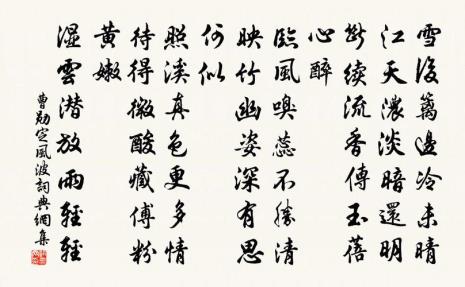 雪後籬邊冷未晴
江天濃淡暗還明
断續流香傳玉蓓
心醉
臨風嗅蕊不勝清
映竹幽姿深有思
何似
照溪真色更多情
待得微酸藏傅粉
黄嫩
湿雲潜放雨輕輕
曹勛定風波詞典網集